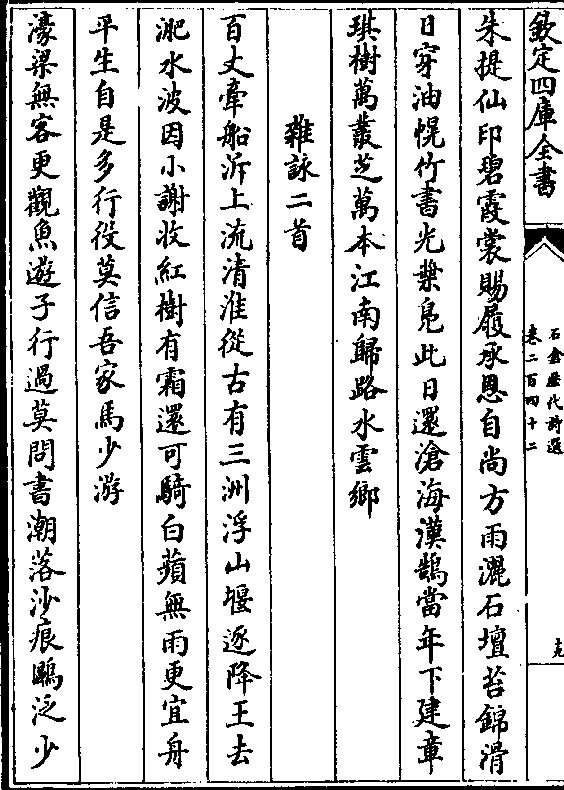 欽定四庫全書
石倉歷代詩選
卷二百四十二
朱提仙印碧霞裳賜履承恩自尚方雨灑石壇苔錦滑
日穿油幌竹書光葉凫此日還滄海漢鵠當年下建章
琪樹萬叢芝萬本江南歸路水雲鄉
雜詠二首
百丈牽船泝上流清淮從古有三洲浮山堰逐降王去
淝水波因小謝收紅樹有霜還可騎白蘋無雨更宜舟
平生自是多行役莫信吾家馬少游
濠梁無客更觀魚遊子行過莫問書潮落沙痕鷗泛少